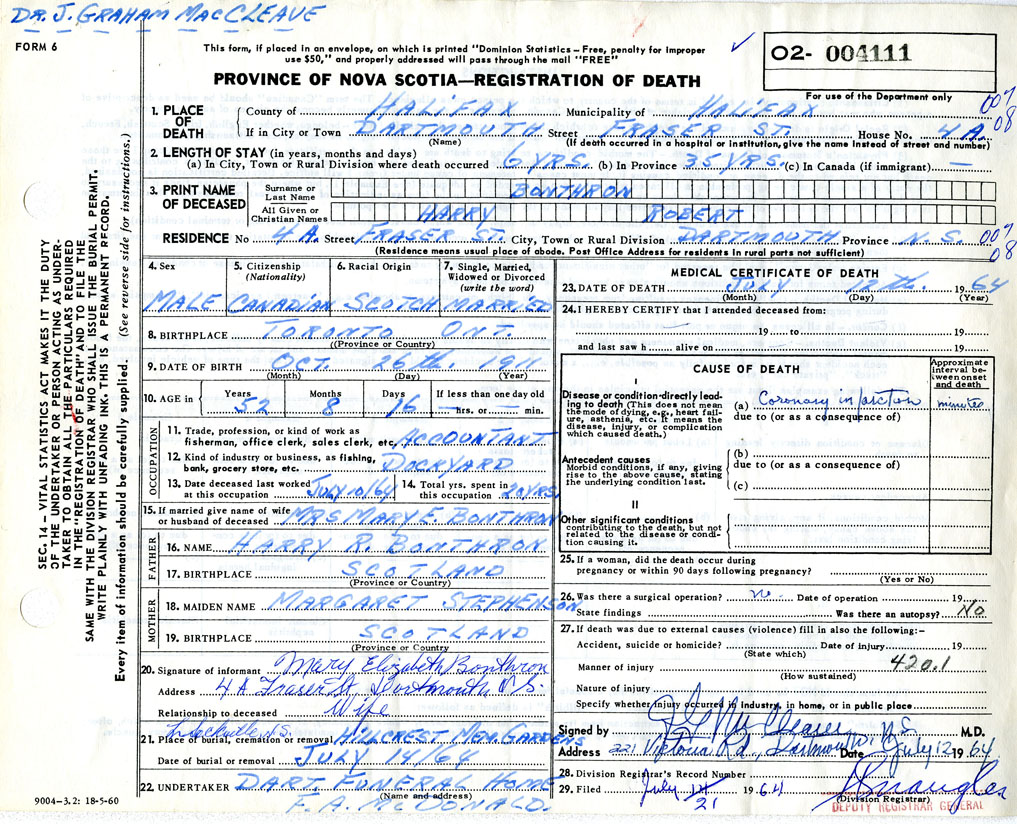 DR. J. GRAHAM MACCLEAVE
FORM 6
This form, if placed in an envelope, on which is printed "Dominion Statistics – Free, penalty for improper
use $50," and properly addressed will pass through the mail "FREE"
PROVINCE OF NOVA SCOTIA—REGISTRATION OF DEATH
02- 004111
For use of the Department only
1. PLACE OF DEATH County of HALIFAX Municipality of HALIFAX 007
If in City or Town DARTMOUTH Street FRASER ST. House No. 4A. 08
(Name) (If death occurred in a hospital or institution, give the name instead of street and number)
2. LENGTH OF STAY (in years, months and days)
(a) In City, Town or Rural Division where death occurred 6 YRS. (b) In Province 35 YRS. (c) In Canada (if immigrant) —
3. PRINT NAME OF DECEASED Surname or Last Name BONTHRON
All Given or Christian Names HARRY ROBERT
RESIDENCE No 4A. Street FRASER ST. City, Town or Rural Division DARTMOUTH Province N.S. 007
(Residence means usual place of abode. Post Office Address for residents in rural parts not sufficient) 08
4. Sex 5. Citizenship (Nationality) 6. Racial Origin 7. Single, Married, Widowed or Divorced (write the word)
MALE CANADIAN SCOTCH MARRIED
8. BIRTHPLACE TORONTO ONT.
(Province or Country)
9. DATE OF BIRTH OCT. 26th. 1911
(Month) (Day) (Year)
10. AGE in Years Months Days If less than one day old
52 8 16 — hrs. or — min.
OCCUPATION
11. Trade, profession, or kind of work as
fisherman, office clerk, sales clerk, etc. ACCOUNTANT
12. Kind of industry or business, as fishing,
bank, grocery store, etc. DOCKYARD
13. Date deceased last worked at this occupation JULY 10/64 14. Total yrs. spent in this occupation 20 YRS.
15. If married give name of wife
or husband of deceased MRS MARY E. BONTHRON
FATHER
16. NAME HARRY R. BONTHRON
17. BIRTHPLACE SCOTLAND
(Province or Country)
MOTHER
18. MAIDEN NAME MARGARET STEPHENSON
19. BIRTHPLACE SCOTLAND
(Province or Country)
20. Signature of informant Mary Elizabeth Bonthron
Address 4A Fraser St, Dartmouth N.S.
Relationship to deceased Wife
Sackville, N.S.
21. Place of burial, cremation or removal HILLCREST MEM. GARDENS
Date of burial or removal JULY 14/64
22. UNDERTAKER DART. FUNERAL HOME
(Name and address)
F. A. McDONALD.
MEDICAL CERTIFICATE OF DEATH
23. DATE OF DEATH JULY 12th. 1964
(Month) (Day) (Year)
24. I HEREBY CERTIFY that I attended deceased from:
19 to 19
and last saw h alive on 19
CAUSE OF DEATH
Approximate interval between onset and death
I
Disease or condition directly leading to death (This does not mean the mode of dying, e.g., heart failure, asthenia, etc. It means the disease, injury, or complication which caused death.)
(a) Coronary infarction minutes
due to (or as a consequence of)
Antecedent causes
Morbid conditions, if any, giving rise to the above cause, stating the underlying condition last.
(b)
due to (or as a consequence of)
(c)
II
Other significant conditions
contributing to the death, but not related to the disease or condition causing it.
25. If a woman, did the death occur during
pregnancy or within 90 days following pregnancy?
(Yes or No)
26. Was there a surgical operation? no Date of operation 19
State findings Was there an autopsy? No
27. If death was due to external causes (violence) fill in also the following:–
Accident, suicide or homicide? Date of injury 19
(State which)
Manner of injury 420.1
(How sustained)
Nature of injury
Specify whether injury occurred in industry, in home, or in public place
Signed by J G MacCleave M.D.
Address 221 Victoria Rd, Dartmouth, N.S. Date July 12 1964
28. Division Registrar's Record Number
29. Filed July 21 1964
(Division Registrar)
DEPUTY REGISTRAR GENERAL
9004–3.2: 18-5-60
SEC. 14– VITAL STATISTICS ACT MAKES IT THE DUTY
OF THE UNDERTAKER OR PERSON ACTING AS UNDER-
TAKER TO OBTAIN ALL THE PARTICULARS REQUIRED
IN THE "REGISTRATION OF DEATH" AND TO FILE THE
SAME WITH THE DIVISION REGISTRAR WHO SHALL ISSUE THE BURIAL PERMIT.
WRITE PLAINLY WITH UNFADING INK. THIS IS A PERMANENT RECORD.
Every item of information should be carefully supplied. (See reverse side for instructions.)